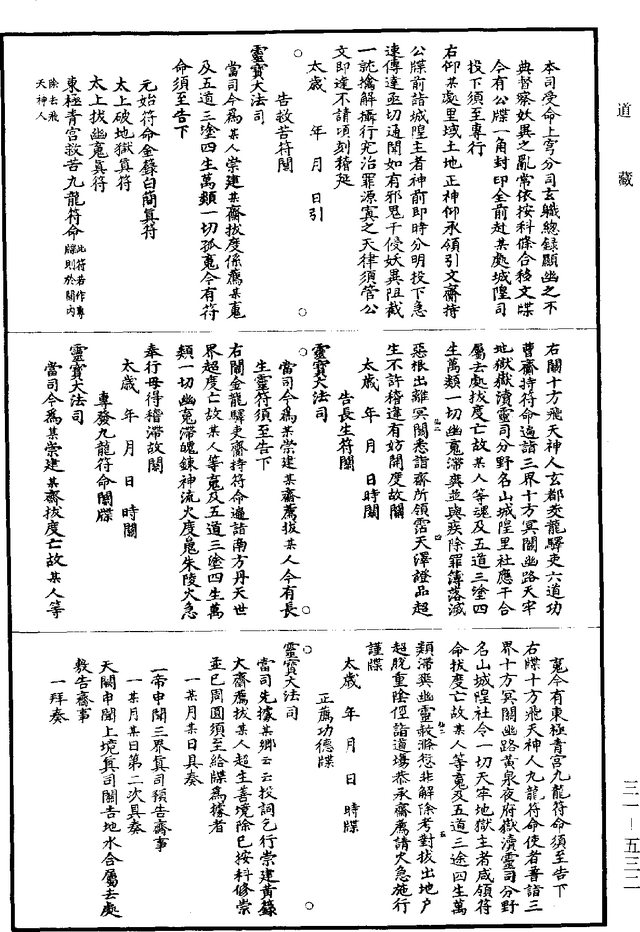 道藏
本司受命上宮分司玄職總錄顯幽之不
典督察妖異之亂常依按科條合移文牒
今有公牒一角封印全前赴某處城隍司
投下須至專行
右仰某處里域土地正神仰承領引文齎持
公牒前詣城隍主者神前即時分明投下急
速傳達亟切通聞如有邪鬼干侵妖異阻截
一詫擒解攝行究治罪源寘之天律須管公
文即達不請頃刻稽延
太歲 年 月 日引
告救苦符關
靈寶大法司
當司今爲某人崇建某齋拔度係薦某䰟
及五道三塗四生萬類一切孤䰟今有符
命須至告下
元始符命金籙白簡真符
太上破地獄真符
太上拔幽䰟真符
東極青宮救苦九龍符命此符若作專牒則於關內
除去飛天神人
右關十方飛天神人玄都茭龍驛吏六道功
曹齎持符命遍詣三界十方冥關幽路天牢
地獄嶽瀆靈司分野名山城隍里社應干合
屬去處拔度亡故某人等魂及五道三塗四
生萬類一切幽䰟滯爽並與疾除罪簿落滅
惡根出離冥關悉詣齋所領霑天澤證品超
生不許稽違有妨開度故關
太歲 年 月 日時關
告長生符關
靈寶大法司
當司今爲某崇建某齋薦拔某人今有長
生靈符須至告下
右關金龍驛吏齎持符命遍詣南方丹天世
界超度亡故某人等䰟及五道三塗四生萬
類一切幽䰟滯魄鍊神流火度䰟朱陵火急
奉行毋得稽滯故關
太歲 年 月 日 時關
專發九龍符命關牒
靈寶大法司
當司今爲某崇建某齋拔度亡故某人等
䰟今有東極青宮九龍符命須至告下
右牒十方飛天神人九龍符命使者普詣三
界十方冥關幽路黃泉夜府嶽瀆靈司分野
名山城隍社令一切天牢地獄主者咸領符
命拔度亡故某人等䰟及五道三途四生萬
類滯爽幽靈赦滌愆非解除考對拔出地户
超脫重陰俓詣道場恭承齋薦請火急施行
謹牒
太歲 年 月 日 時牒
正薦功德牒
靈寶大法司
當司先據某鄉云云投詞乞行崇建黃籙
大齋薦拔某人超生善境除已按科修崇
並已周圓須至給牒爲據者
一某月某日具奏
一帝申聞三界真司預告齋事
一某月某日第二次具奏
天闕申聞上境真司關告地水合屬去處
敷告齋事
一拜奏
三一—五三二